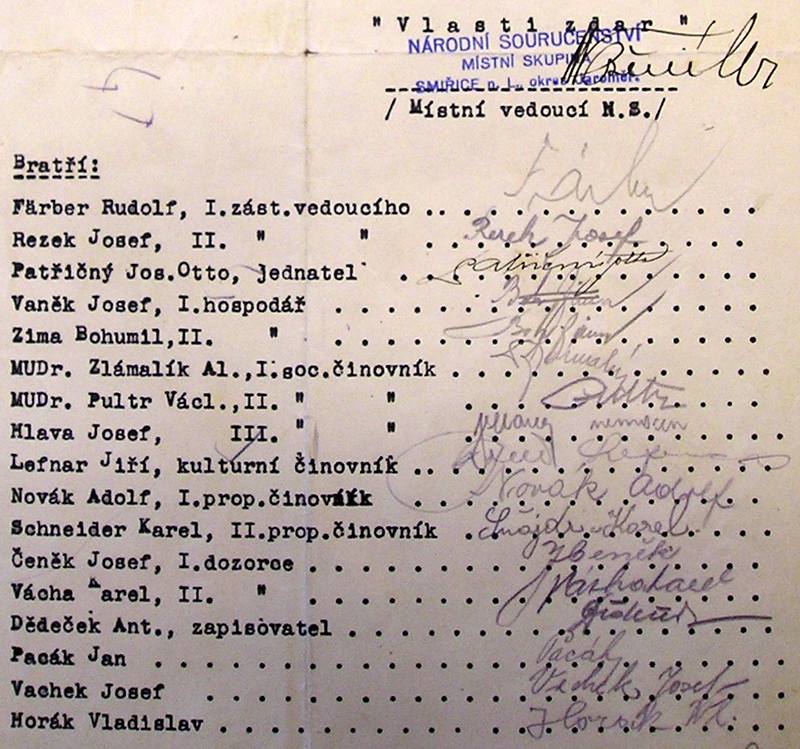 " V l a s t i z d a r "
NÁRODNÍ SOURUČENSTVÍ
MÍSTNÍ SKUPINA
SMIŘICE n. L., okres Jaroměř.
/ Místní vedoucí N.S./
Bratří:
Färber Rudolf, I.zást.vedoucího . . . . . . . . . . . . . Färber
Rezek Josef, II. " " . . . . . . . . . . . . . Rezek Josef
Patřičný Jos.Otto, jednatel . . . . . . . . . . . . . Patřičný Otto
Vaněk Josef, I.hospodář . . . . . . . . . . . . . . . .
Zima Bohumil,II. " . . . . . . . . . . . . . . . . Boh. Zima
MUDr. Zlámalík Al.,I.soc.činovník . . . . . . . . . . . . .
MUDr. Pultr Václ.,II. " " . . . . . . . . . . . .
Hlava Josef, III. " " . . . . . . . . . . . . nemocen
Lefnar Jiří, kulturní činovník . . . . . . . . . . . . .
Novák Adolf, I.prop.činovník . . . . . . . . . . . . . Novák Adolf
Schneider Karel, II.prop.činovník . . . . . . . . . . . . Šnajdr Karel
Čeněk Josef, I.dozorce . . . . . . . . . . . . . . . . . Čeněk
Vácha Karel, II. " . . . . . . . . . . . . . . . . . Vácha Karel
Dědeček Ant., zapisovatel . . . . . . . . . . . . . . . .
Pacák Jan . . . . . . . . . . . . . . . . . . . . . . Pacák
Vachek Josef . . . . . . . . . . . . . . . . . . . . Vachek Josef
Horák Vladislav . . . . . . . . . . . . . . . . . . . Horák Vl.